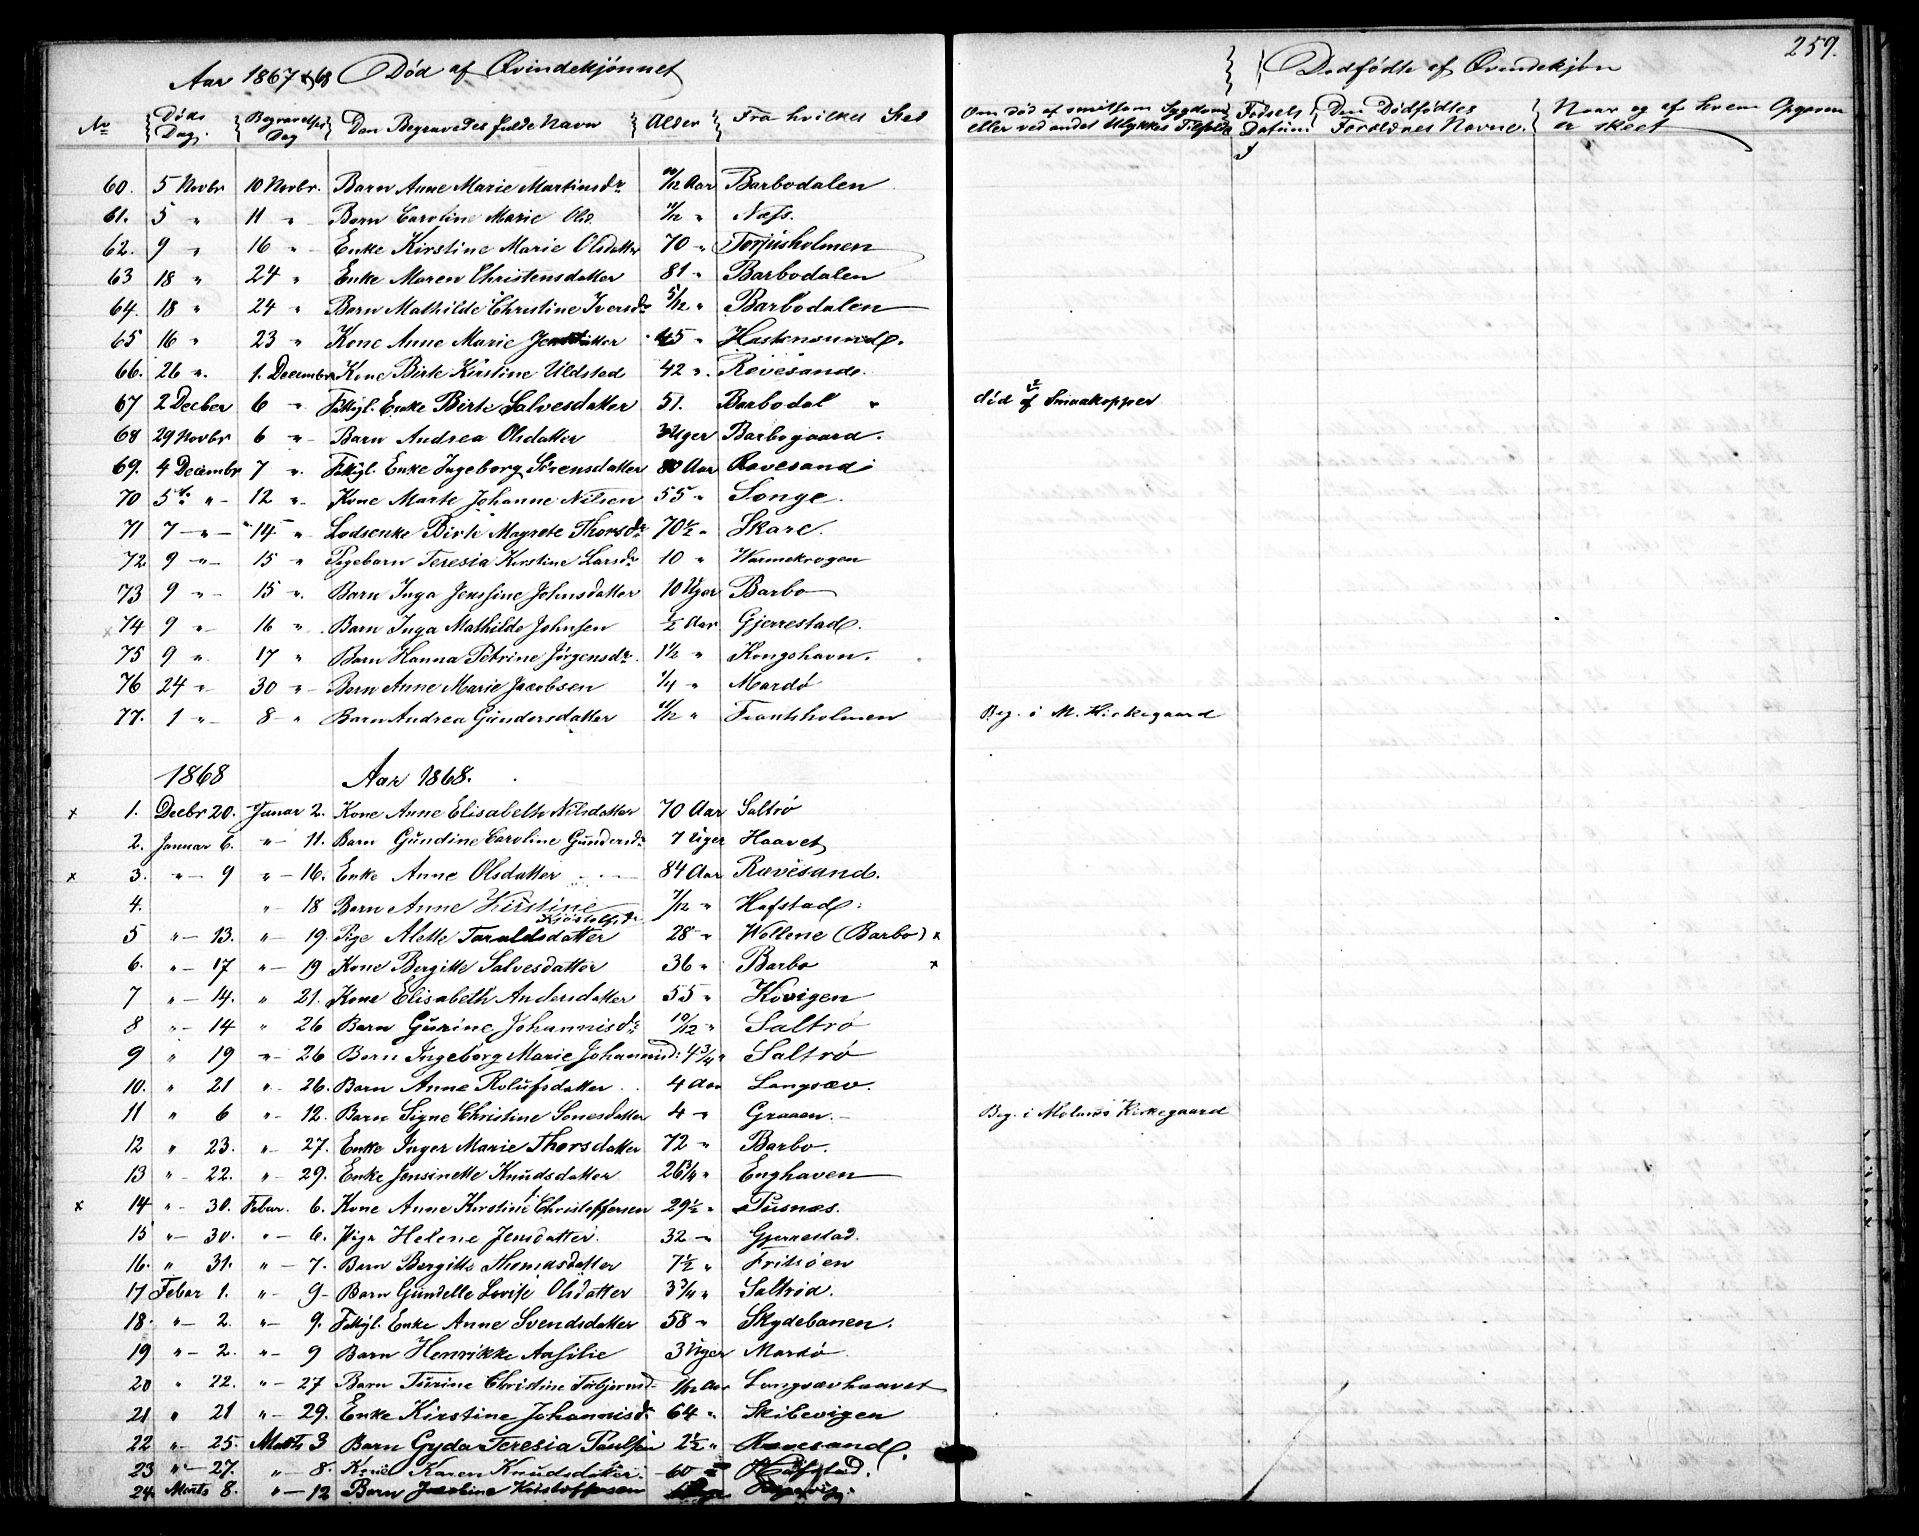 259.
Aar 1867 & 68 Død af Qvindekjønnet
Dødfødte af Qvindekjøn
No Døds Dag. Begravelses Dag Den Begravedes fulde Navn Alder Fra hvilket Sted Om død af smitsom Sygdom eller ved andet Ulykkes Tilfælde Fødsels Datum Den Dødfødtes Forældres Navne. Naar og af hvem Opgaven er skeet
60. 5 Novbr 10 Novbr. Barn Anne Marie Martinsdr 10/12 Aar Barbodalen
61. 5 " 11 " Barn Caroline Marie Olsd. 11/12 " Næss.
62. 9 " 16 " Enke Kirstine Marie Olsdatter 70 " Torjusholmen
63 18 " 24 " Enke Maren Christensdatter 81 " Barbodalen
64. 18 " 24 " Barn Mathilde Christine Iversdr 5/12 " Barbodalen
65 16 " 23 " Kone Anne Marie 45 " Hastensund.
66. 26 ". 1. Decembr Kone Birte Kirstine Uldsted 42 ". Rævesand.
67 2 Decber 6 " Fattigl. Enke Birte Salvesdatter 51. Barbodal " død af Smaakopper
68 29 Novbr 6 " Barn Andrea Olsdatter 3 Uger Barbogaard.
69. 4 Decembr 7 ". Fattigl. Enke Ingeborg Sørensdatter 80 Aar Rævesand
70 5te " 12 ". Kone Marte Johanne Nilsen 55 " Songe.
71 7 " 14 " Lodsenke Birte Magrete Thorsdr 70 1/2 " Skare.
72 9 " 15 " Pigebarn Teresia Kirstine Larsdr 10 " Warmekrogen
73 9 " 15 ". Barn Inga Jenssine Johnsdatter 10 Uger Barbo
x 74 9 " 16 " Barn Inga Mathilde Johnsen 1/2 Aar Gjerrestad.
75 9 " 17 " Barn Hanna Petrine Jørgensdr. 1 1/2 " Kongshavn.
76 24 " 30 " Barn Anne Marie Jacobsen 1/4 " Mærdø
77. 1 " 8 " Barn Andrea Gundersdatter 11/12 " Frantsholmen Beg. i M. Kirkegaard
1868 Aar 1868.
x 1. Decbr 20. Januar 2. Kone Anne Elisabeth Nilsdatter 70 Aar Saltrø
2. Januar 6. " 11. Barn Gundine Caroline Gundersdr 7 Uger Haavet
x 3. " 9 " 16. Enke Anne Olsdatter 84 Aar Rævesand.
4. " 18 Barn Anne Kirstine 7/12 " Hafstad.
5 " 13. " 19. Pige Alette Taraldsdatter 28 " Wollene (Barbo) x
6. " 17 " 19 Kone Bergitte Salvesdatter 36 " Barbo x
7 " 14. " 21. Kone Elisabeth Andersdatter 55 " Kovigen
8 " 14 " 26 Barn Gurine Johannisdr 10/12 " Saltrø
9 " 19 " 26 Barn Ingeborg Marie Johannisd: 4 3/4 " Saltrø
10. " 21 " 26. Barn Anne Rolufsdatter 4 Aar Langsæv.
11 " 6 " 12. Barn Signe Christine Sonesdatter 4 " Graaen. Beg. i Molands Kirkegaard
12 " 23. " 27. Enke Inger Marie Thorsdatter 72 " Barbo.
13 " 22. " 29. Enke Jensinette Knudsdatter 26 3/4 " Enghaven
x 14 " 30. Febar. 6. Kone Anne Kirstine Christoffersen 29 1/2 " Pusnæs.
15 " 30. " 6. Pige Helene Jensdatter. 32 " Gjerrestad.
16. " 31. " 7. Barn Bergitte Thomasdatter 7 1/2 " Fritsøen
17 Febar 1. " 9 Barn Gundelle Lovise Olsdatter 3 3/4 " Saltrød.
18. " 2. " 9. Fattigl. Enke Anne Svendsdatter 58 " Skydebanen.
19 " 2. " 9 Barn Henrikke Aasilie 3 Uger Mærdø
20 " 22. " 27 Barn Turine Christine Torbjørnsd. 1/12 Aar Langsævhaavet
21 " 21 " 29. Enke Kirstine Johannisdr 64 " Skibevigen
22 " 25. Marts 3 Barn Gyda Teresia Paulsen 2 1/2 " Rævesand.
23 " 27. " 8. Kone Karen Knudsdatter. 60 " Hafstad.
24. Marts 8. " 12 Barn Kristoffersen